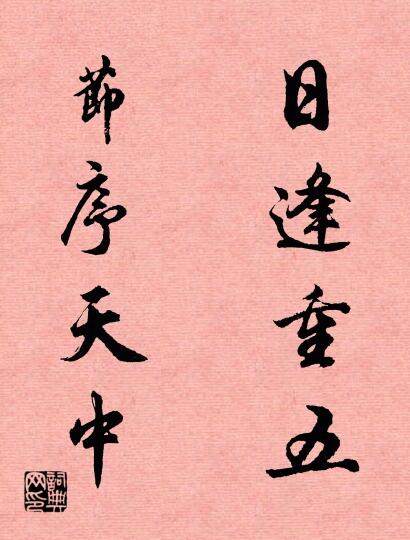 日逢重五
節序天中
詞典網印